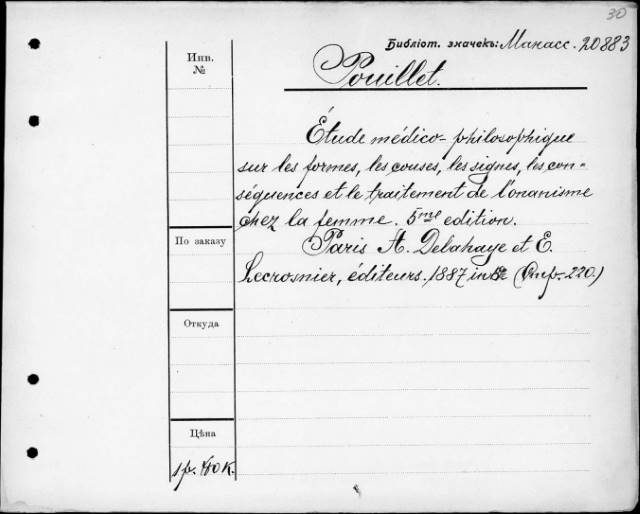 30
Библіот. значекъ: Манасс. 20883
Инв.
№
Pouillet.
Étude médico-philosophique
sur les formes, les couses, les signes, les con-
séquences et le traitement de l'onanisme
chez la femme. 5me edition.
По заказу
Paris A. Delahaye et E.
Lecrosnier, éditeurs. 1887 in 8º 220.)
Откуда
Цѣна
1 р. 40 к.